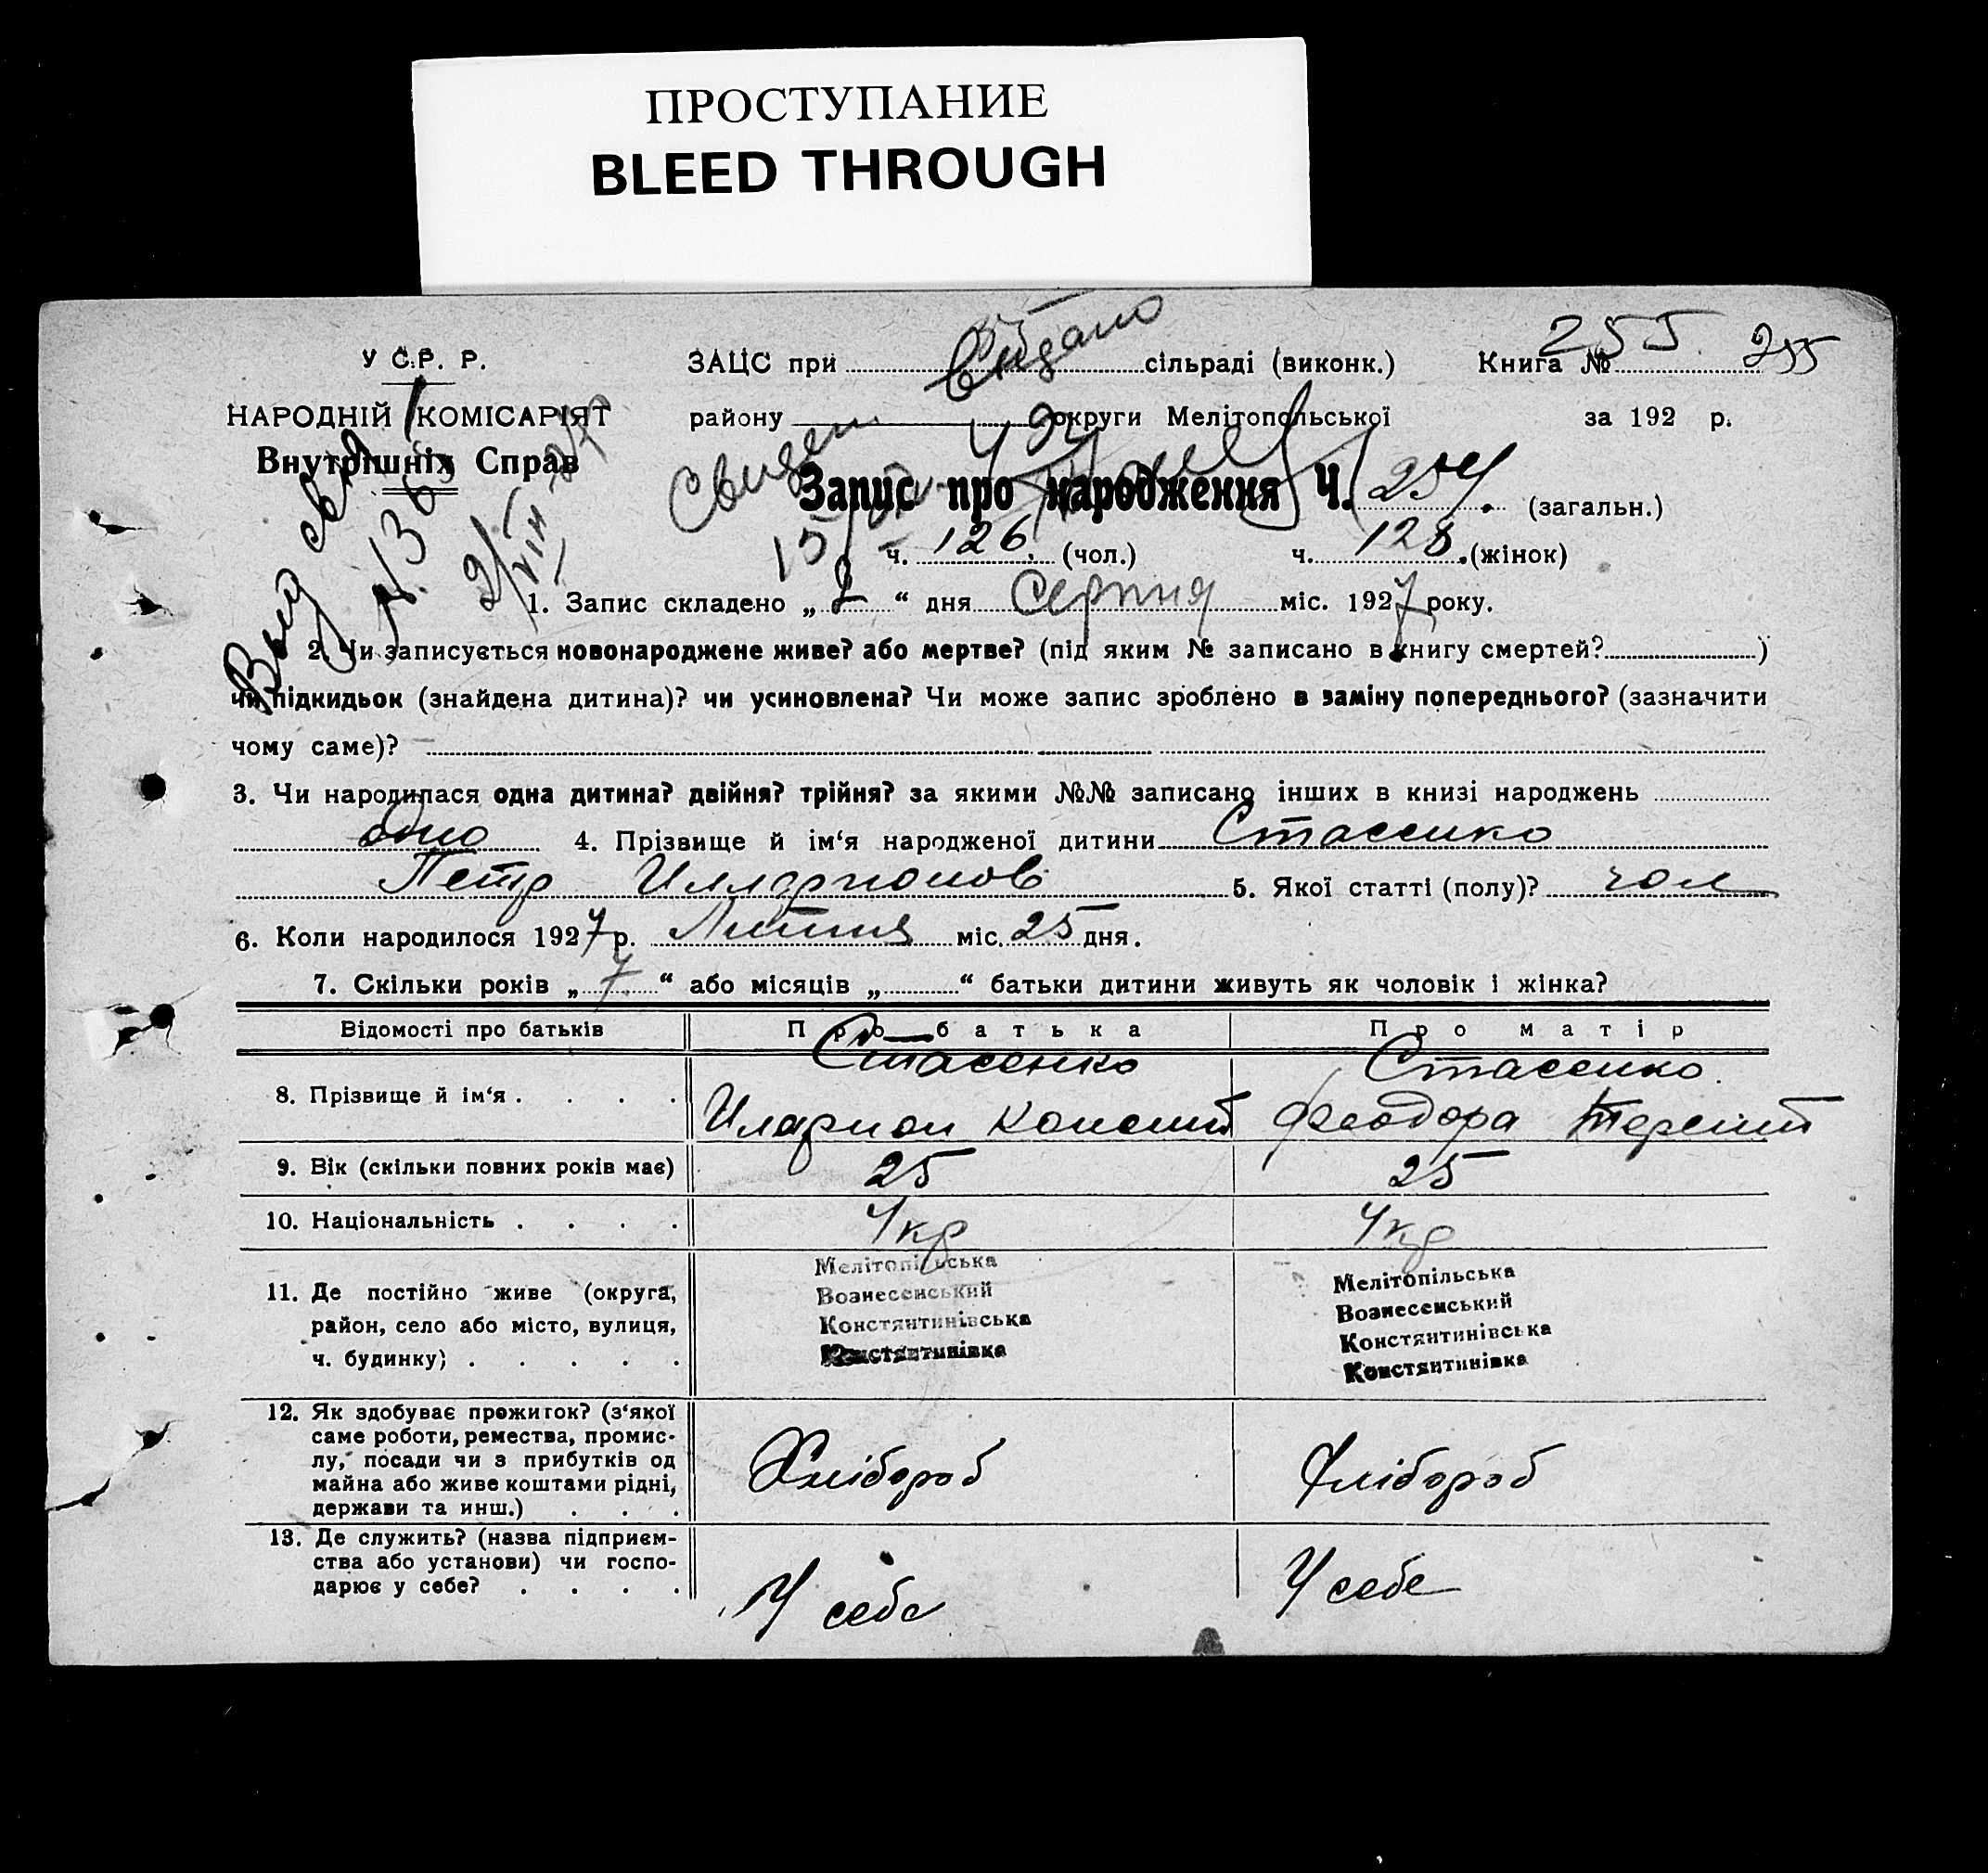 ПРОСТУПАНИЕ
BLEED THROUGH
У С.Р. Р.
НАРОДНІЙ КОМІСАРІЯТ
Внутрішніх Справ
ЗАЦС при Видано сільраді (виконк.) Книга № 255 255
району округи Мелітопольської за 192 р.
Запис про народження Ч. 254 (загальн.)
ч. 126. (чол.) ч. 128. (жінок)
1. Запис складено „ 2 “ дня Серпня міс. 1927 року.
2. Чи записується новонароджене живе? або мертве? (під яким № записано в книгу смертей? )
чи підкидьок (знайдена дитина)? чи усиновлена? Чи може запис зроблено в заміну попереднього? (зазначити
чому саме)?
3. Чи народилася одна дитина? двійня? трійня? за якими №№ записано інших в книзі народжень
одно 4. Прізвище й ім‘я народженої дитини Стасенко
Петр Илларионов 5. Якої статті (полу)? чол
6. Коли народилося 1927 р. Липня міс. 25 дня.
7. Скільки років „ 7 “ або місяців „ “ батьки дитини живуть як чоловік і жінка?
Відомості про батьків Про батька Про матір
8. Прізвище й ім‘я . . . . Стасенко Стасенко
Иларион Консит Феодора Терент
9. Вік (скільки повних років має) 25 25
10. Національність . . . . Укр Укр
11. Де постійно живе (округа, район, село або місто, вулиця, ч. будинку) . . . . .
Мелітопільська
Вознесенський
Константинівська
Константинівка
Мелітопільська
Вознесенський
Константинівська
Константинівка
12. Як здобуває прожиток? (з‘якої
саме роботи, ремества, промис-
лу, посади чи з прибутків од
майна або живе коштами рідні,
держави та инш.) . . .
Хлібороб Хлібороб
13. Де служить? (назва підприєм-
ства або установи) чи госпо-
дарює у себе? . . . .
У себе У себе